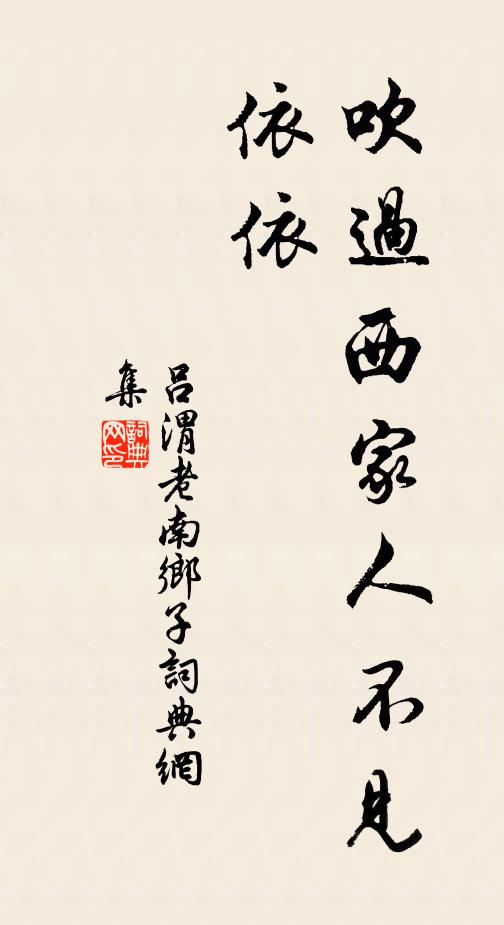 吹過西家人不見
依依
呂渭老南鄉子詞典網
集
詞典
网印